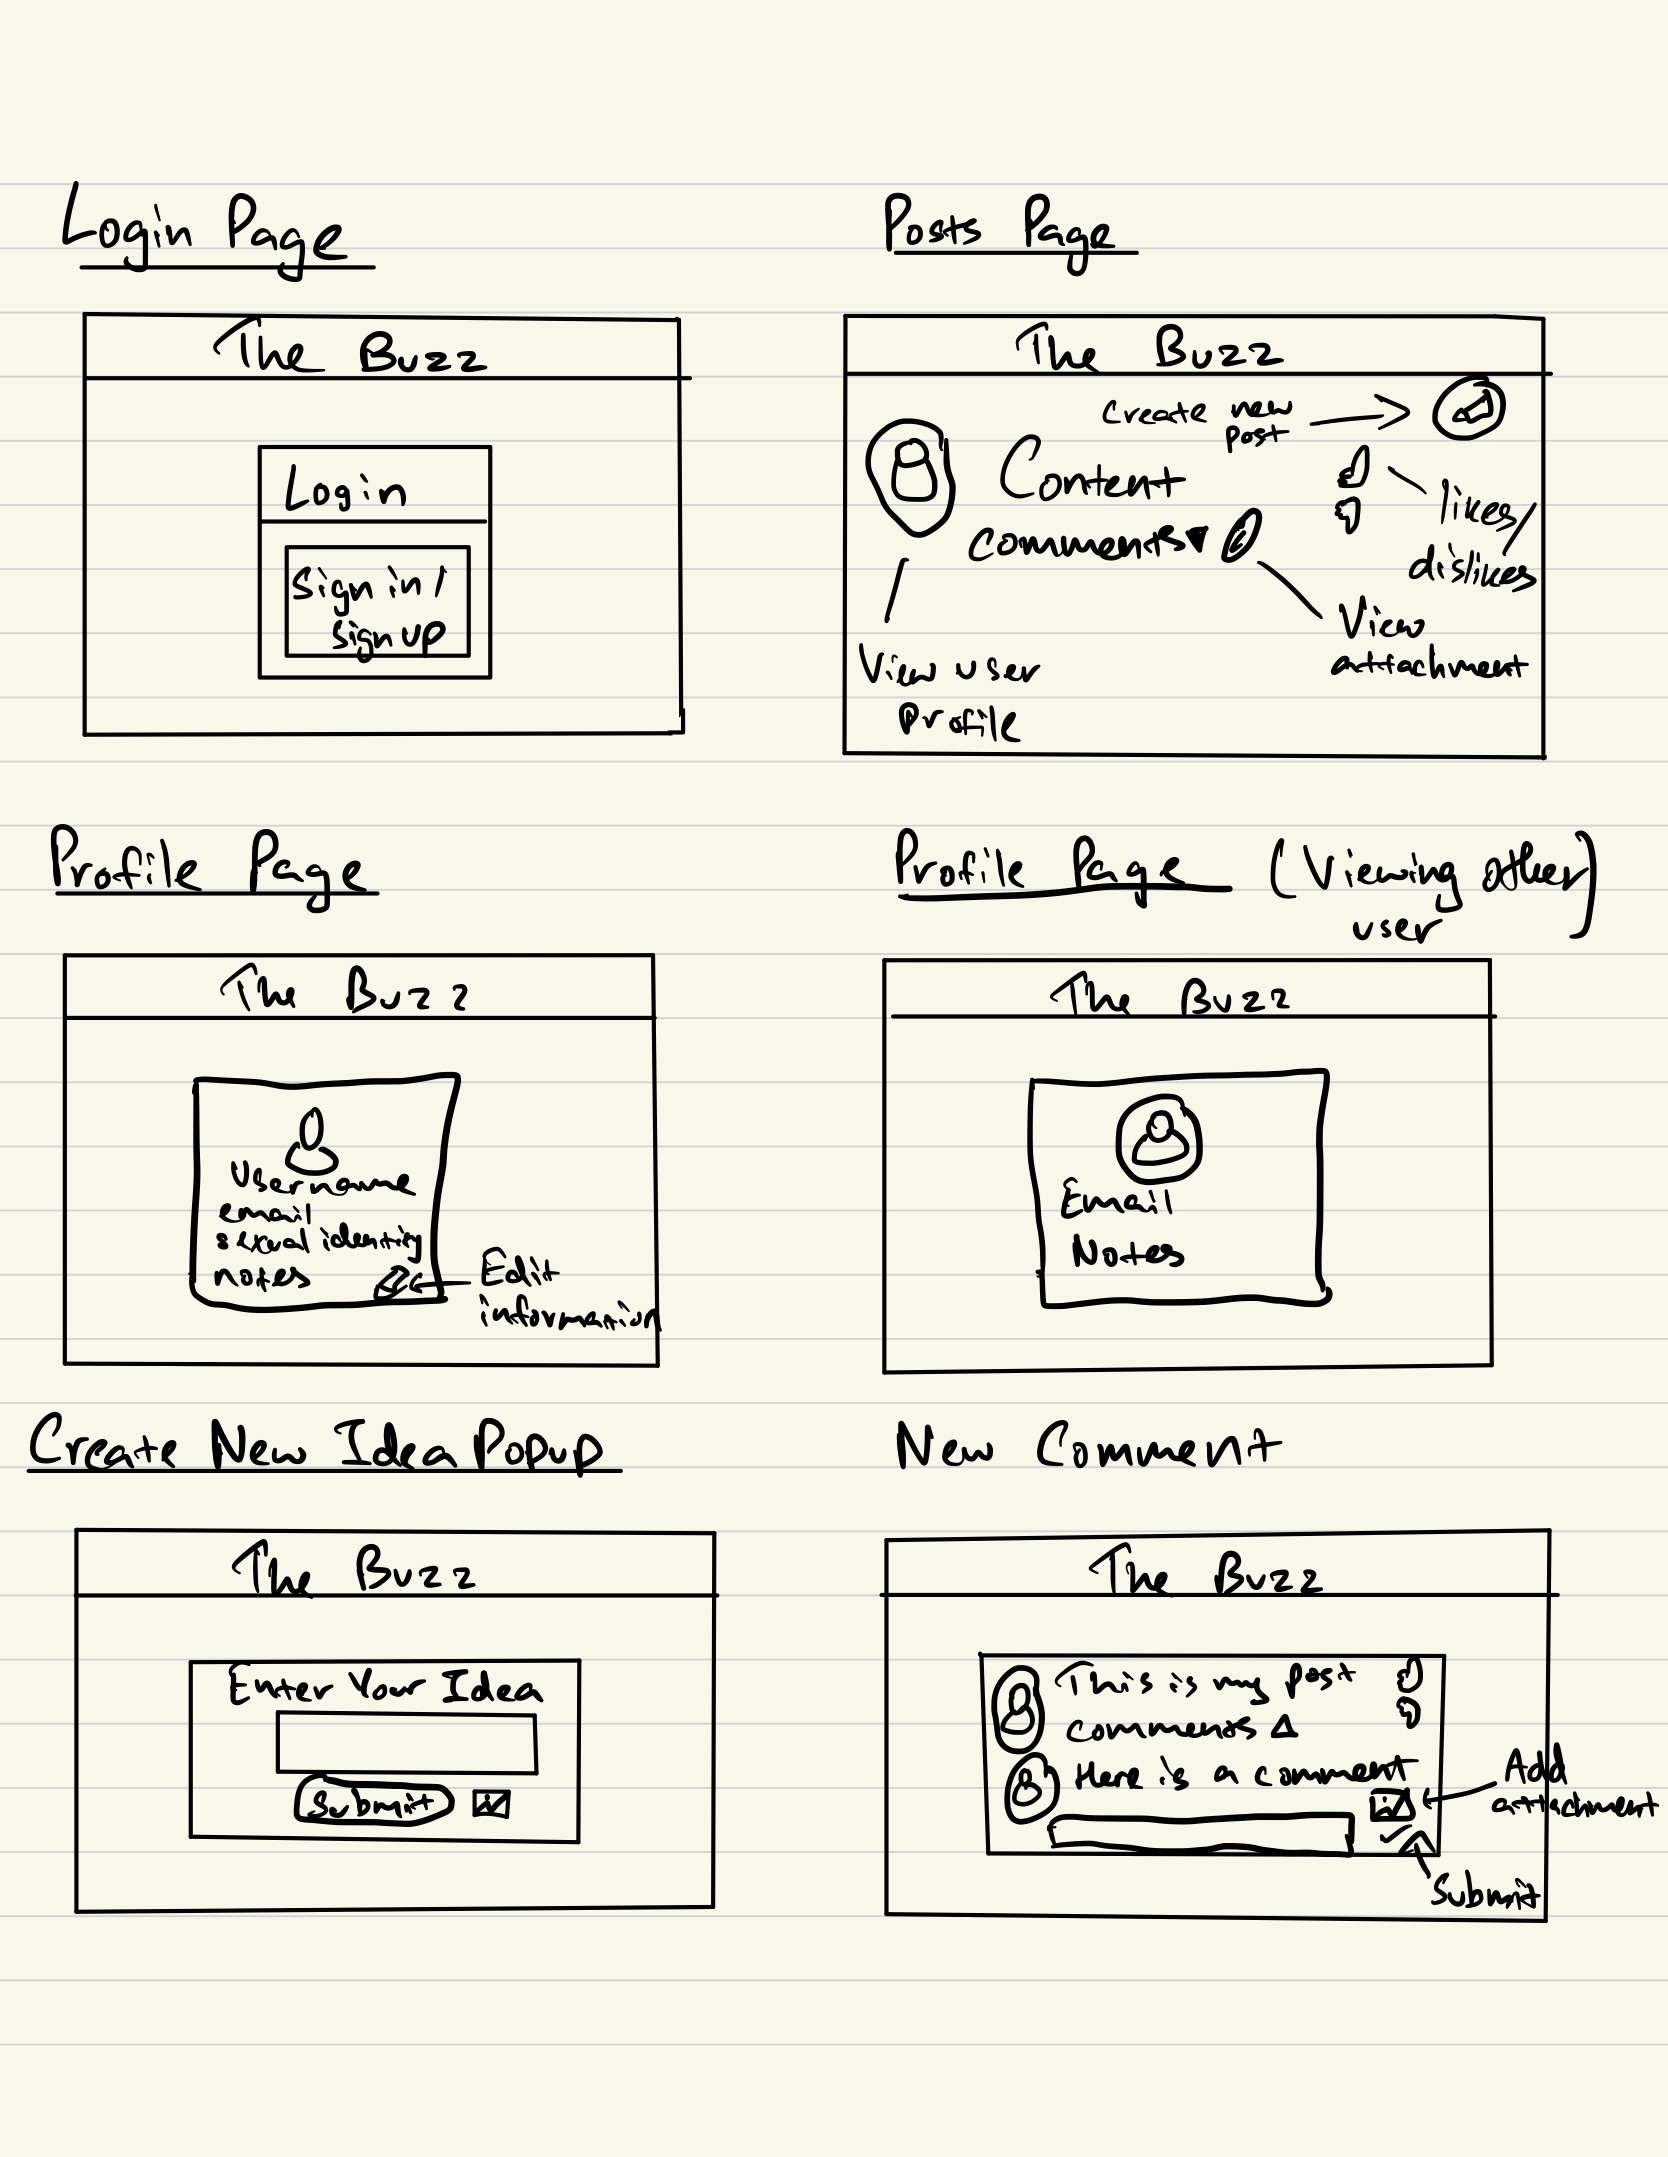 Login Page
The Buzz
Login
Sign in /
sign up
Posts Page
The Buzz
Create new
post
Content
comments
likes/
dislikes
View
attachment
View user
profile
Profile Page
The Buzz
Username
email
sexual identity
notes
Edit
information
Profile Page (Viewing other
user)
The Buzz
Email
Notes
Create New Idea Popup
The Buzz
Enter Your Idea
Submit
New Comment
The Buzz
This is my post
comments
Here is a comment
Add
attachment
Submit